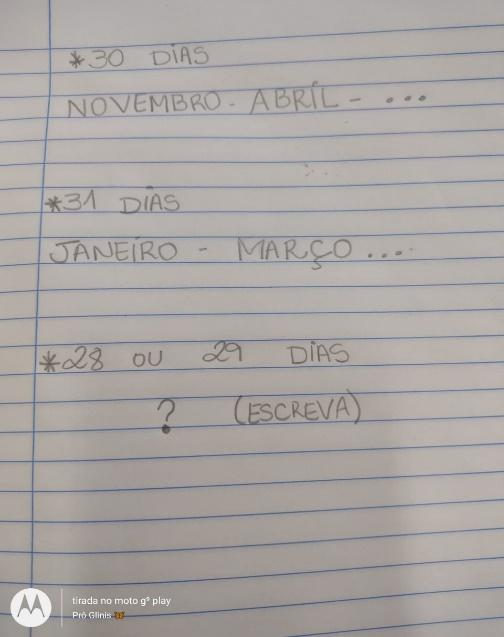 *30 DIAS
NOVEMBRO - ABRIL - ...
*31 DIAS
JANEIRO - MARÇO ....
*28 OU 29 DIAS
? (ESCREVA)
tirada no moto g⁹ play
Pró Glinis